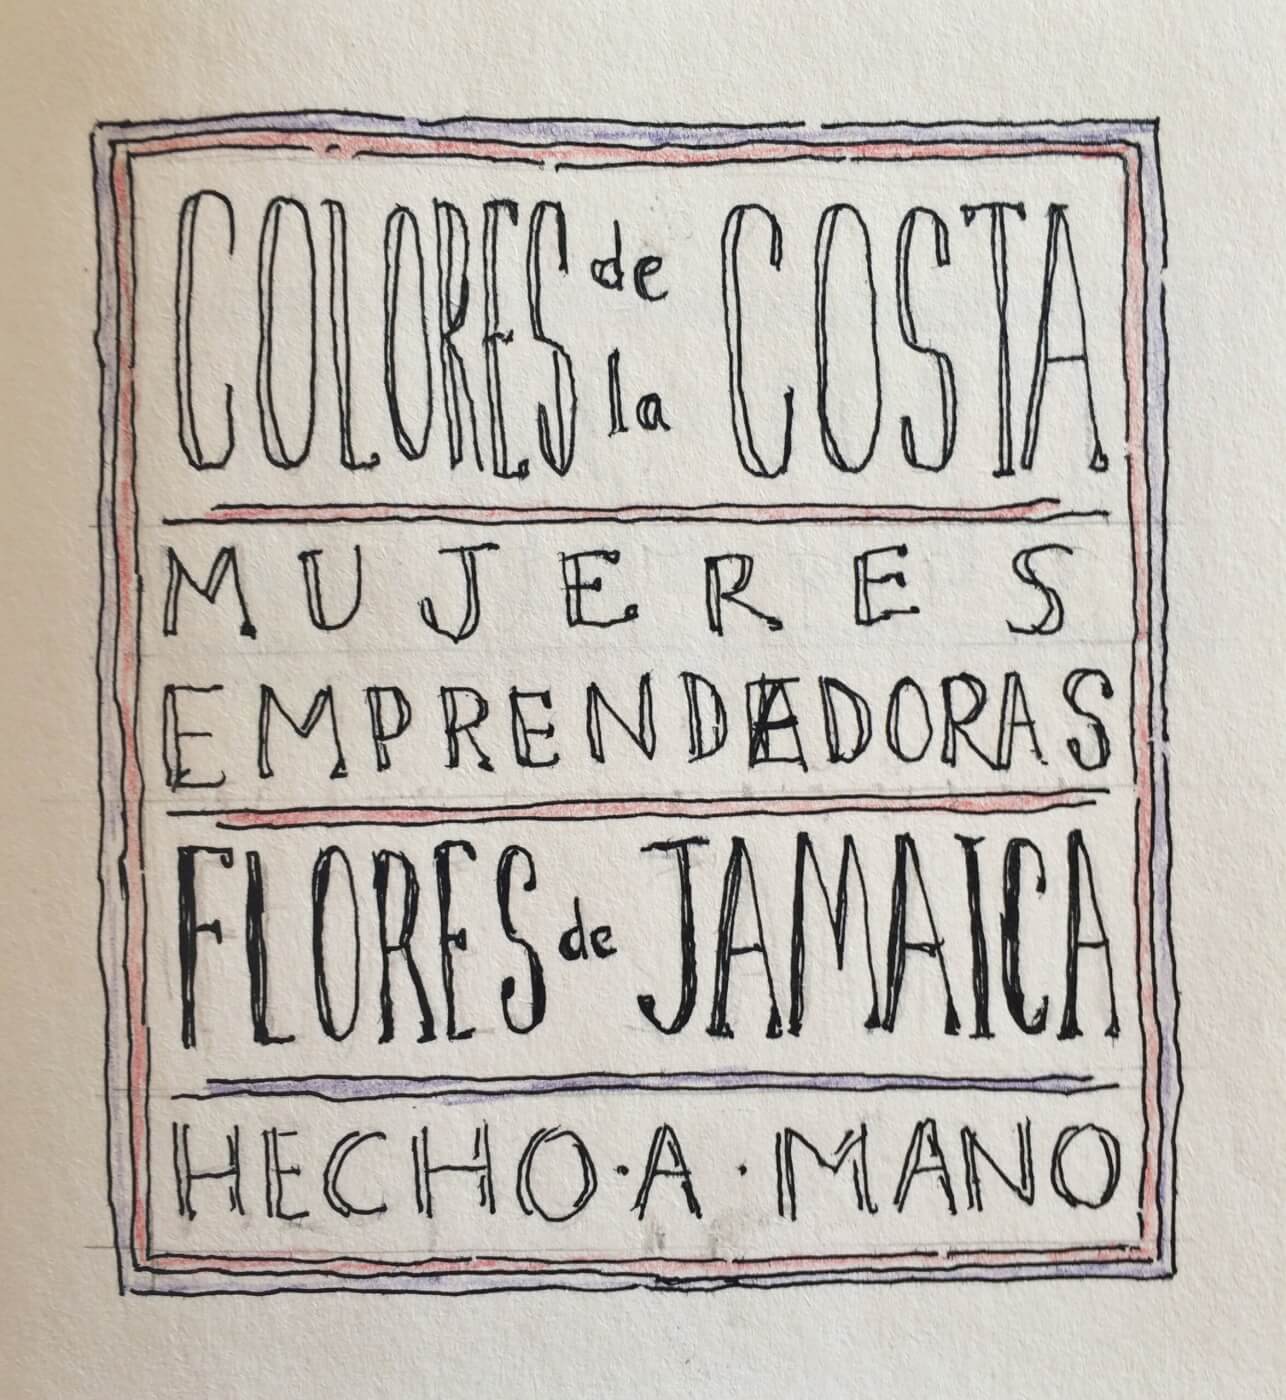 COLORES de la COSTA
MUJERES
EMPRENDEDORAS
FLORES de JAMAICA
HECHO·A·MANO